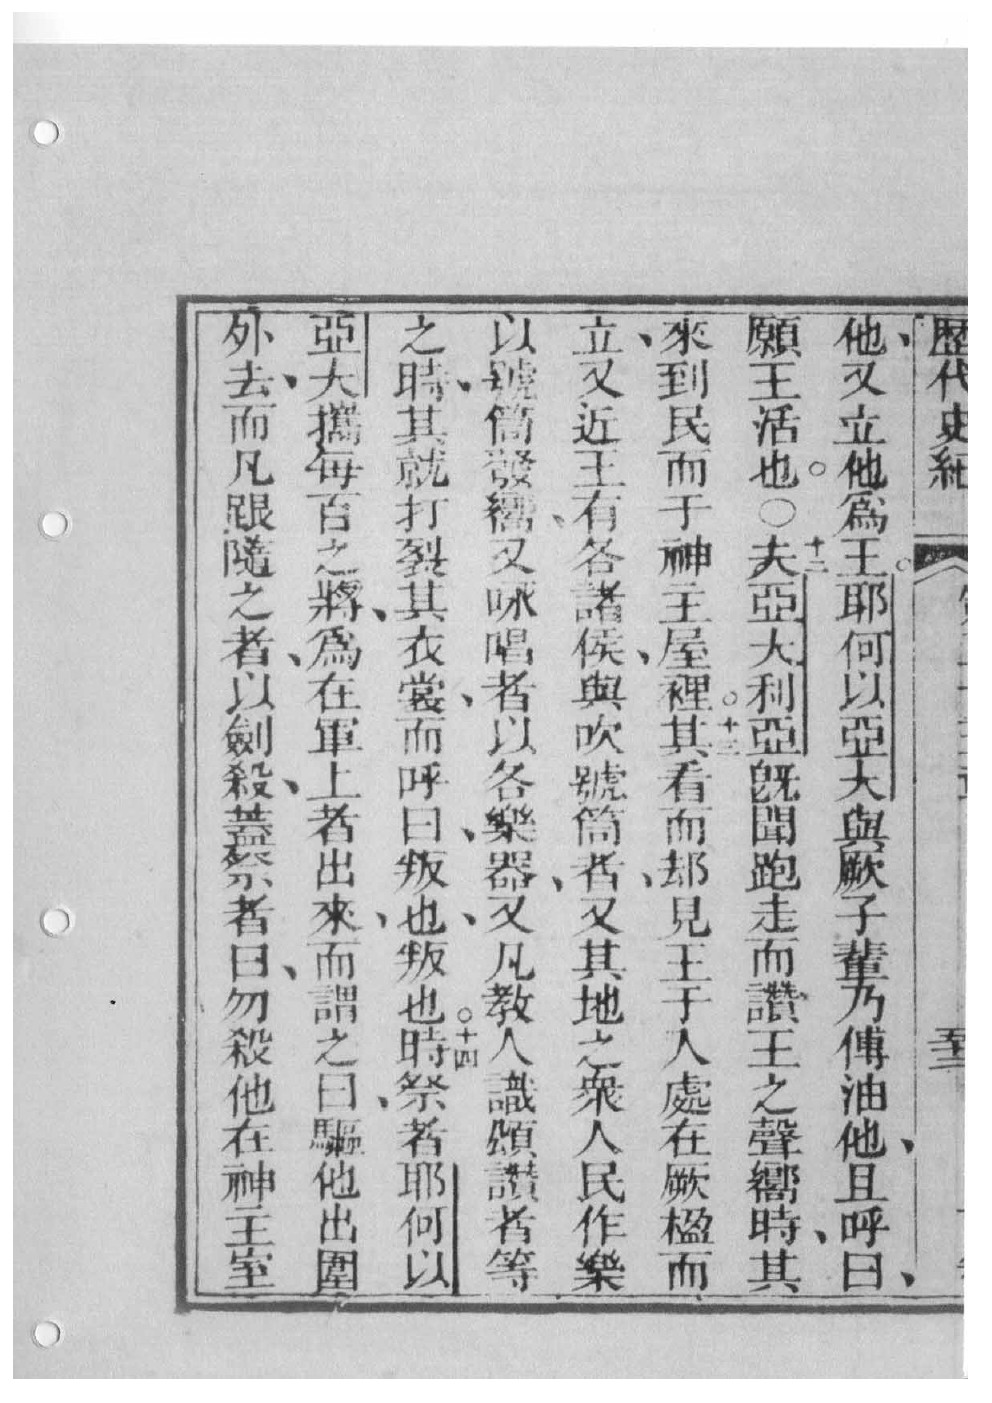 歷代史紀
他、又立他爲王。耶何以亞大與厥子輩乃傅油他、且呼曰、
願王活也。○十二夫亞大利亞旣聞跑走而讚王之聲嚮時、其
來到民而于神主屋裡。十三其看而却見王于人處在厥楹而
立、又近王有各諸侯、與吹號筒者、又其地之衆人民作樂
以號筒發嚮、又咏唱者以各樂器、又凡教人識頌讚者等
之時、其就打裂其衣裳、而呼曰、叛也、叛也。十四時祭者耶何以
亞大攜每百之將、爲在軍上者出來、而謂之曰、驅他出圍
外去、而凡跟隨之者、以劍殺、蓋祭者曰、勿殺他在神主室